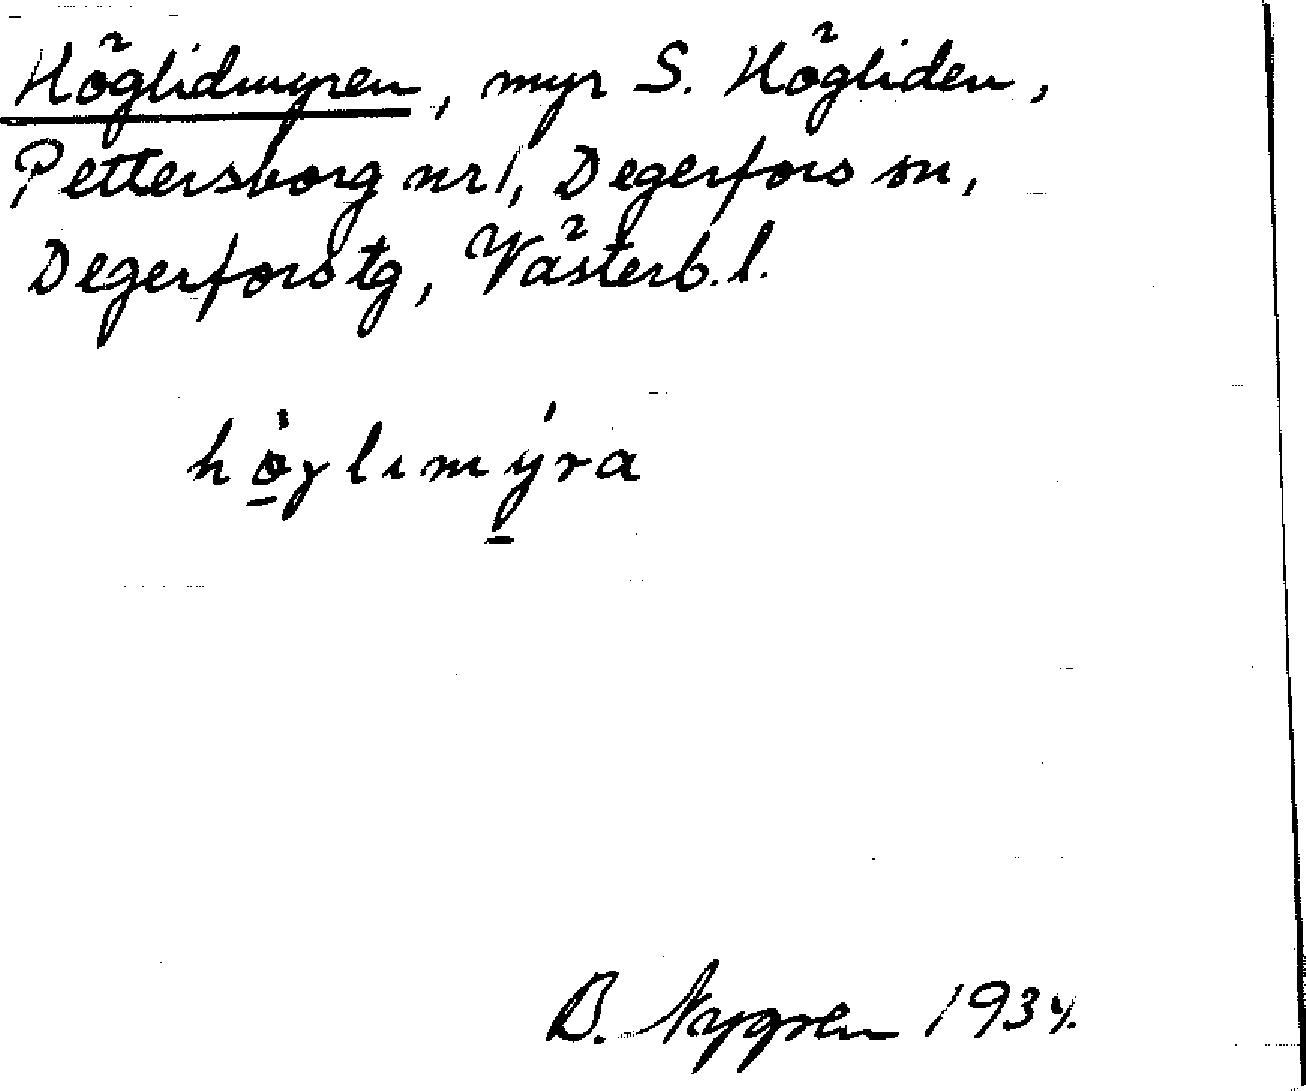 Höglidmyren, myr S. Högliden,
Pettersborg nr 1, Degerfors sn,
Degerfors tg, Västerb. l.
hö̱̀γlımý̱ra
B. Nygren 1934.